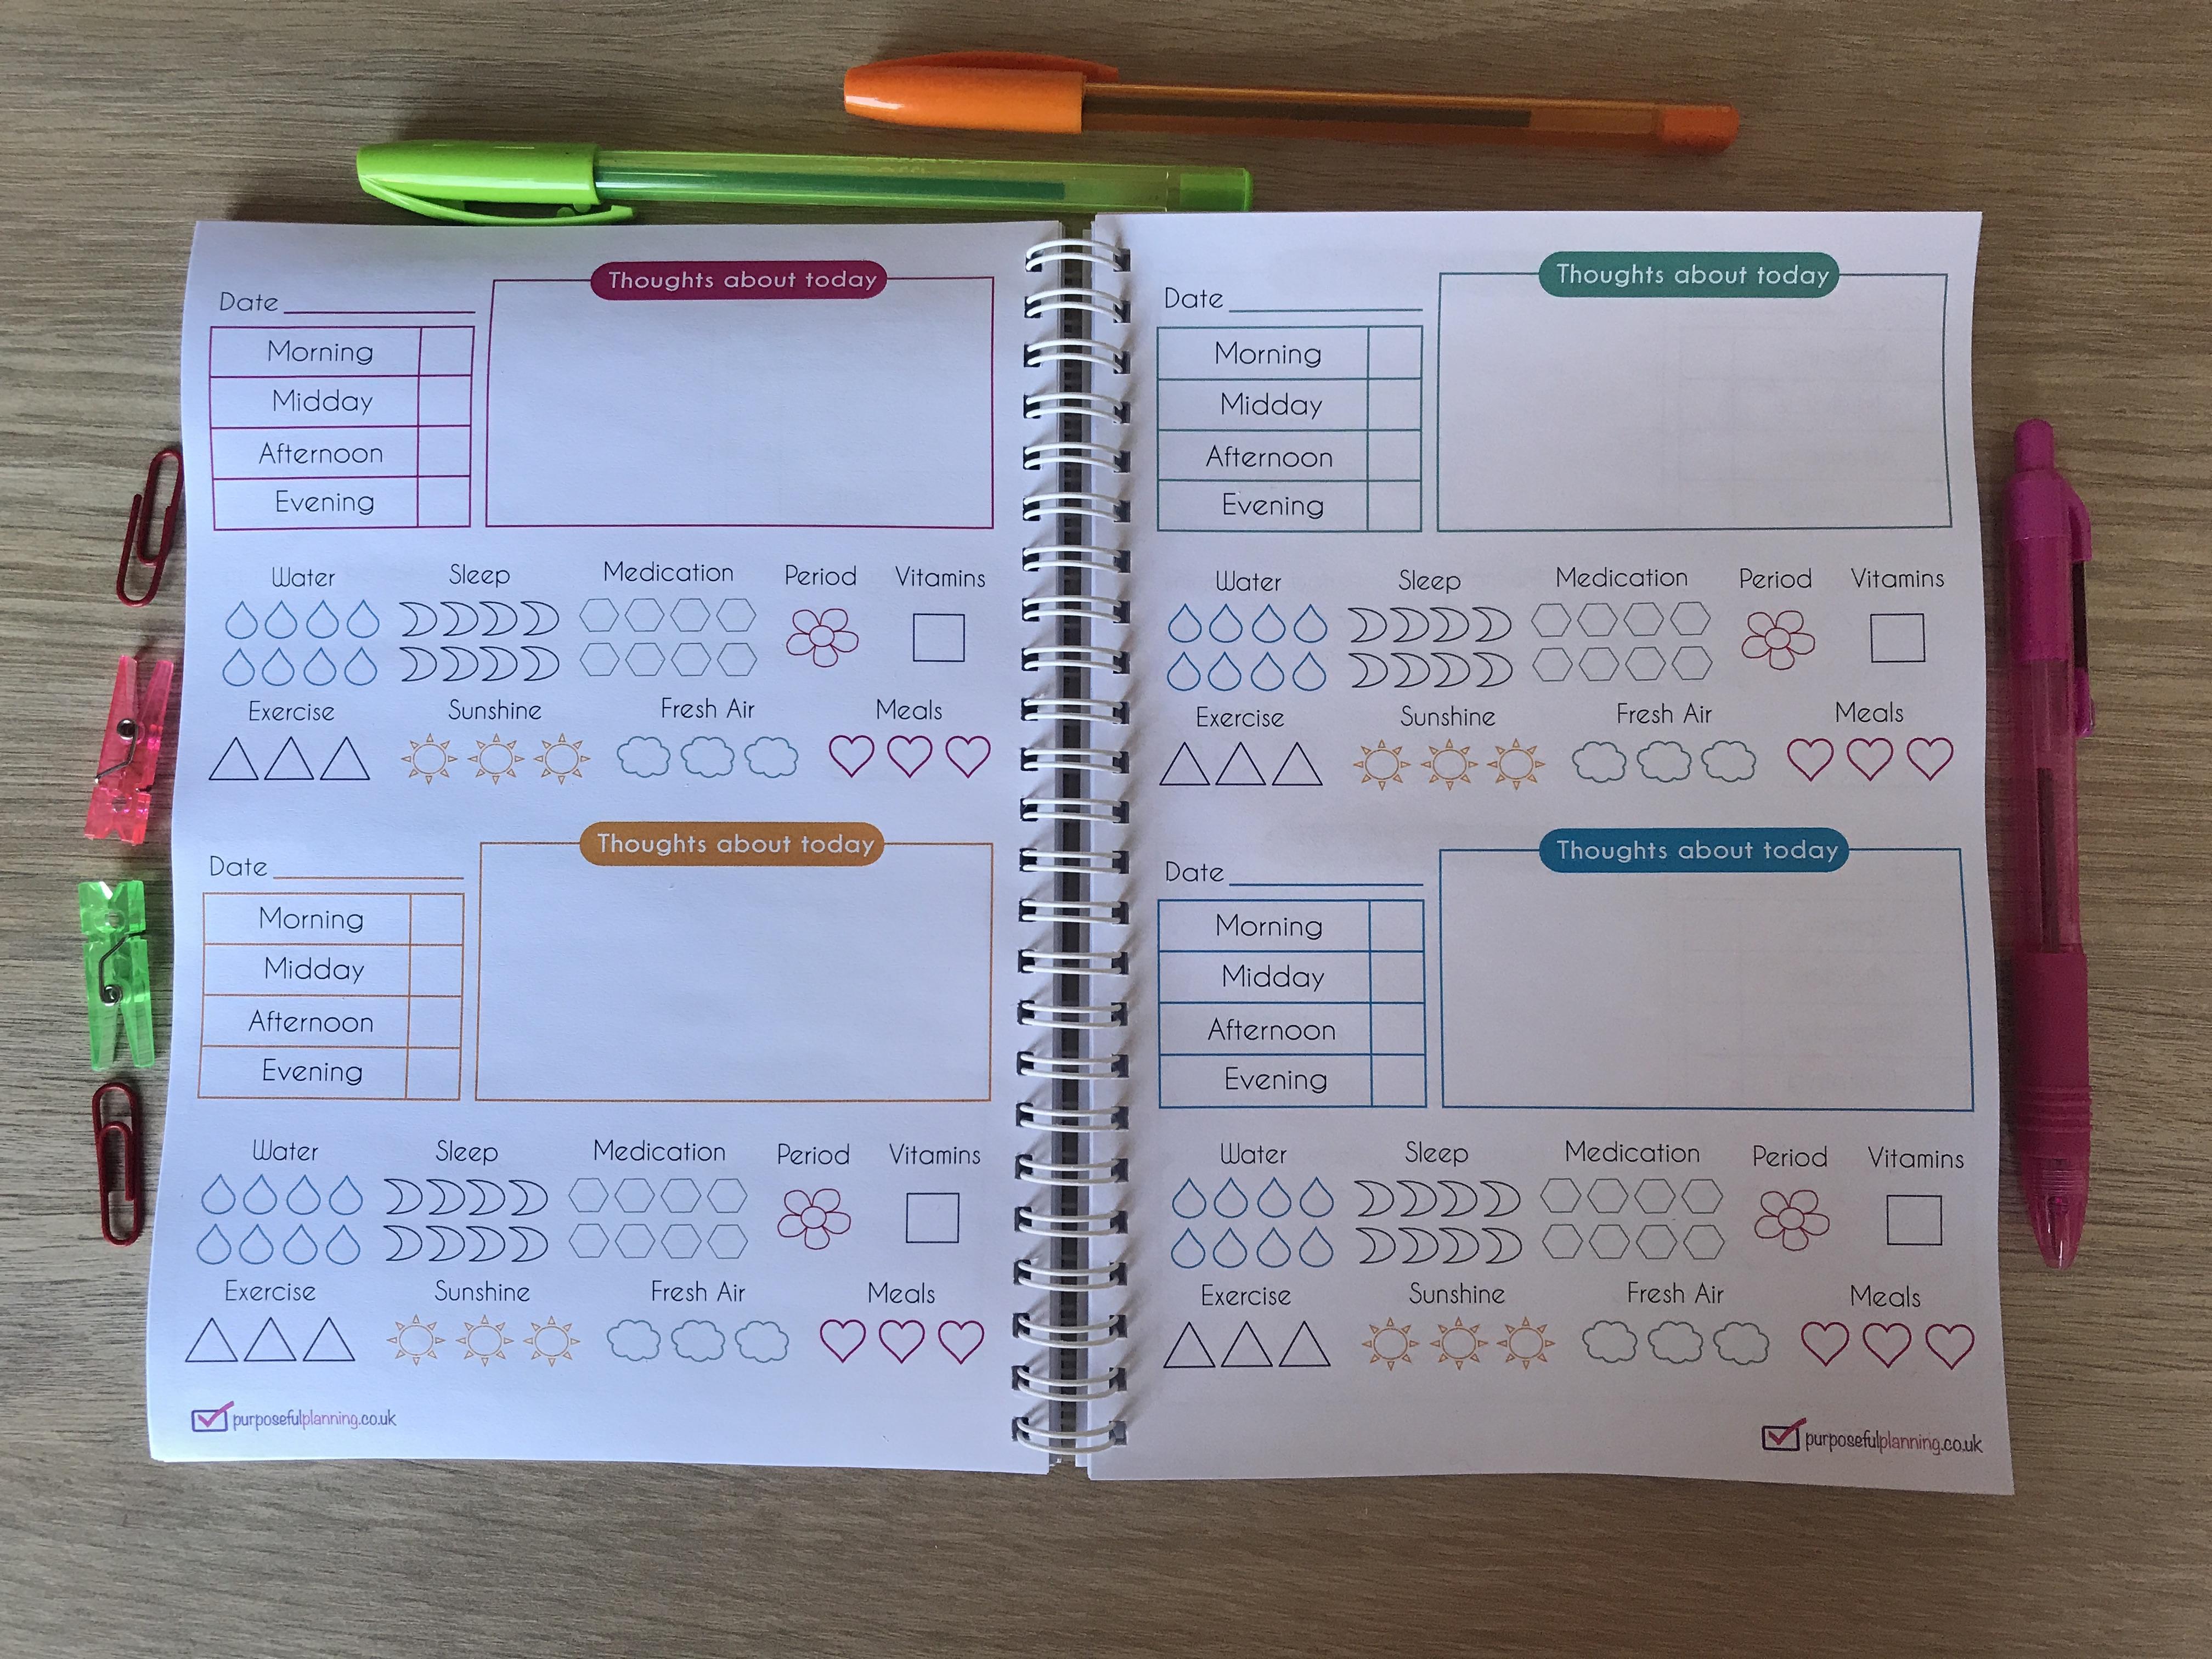 Thoughts about today
Date
Morning
Midday
Afternoon
Evening
Water Sleep Medication Period Vitamins
Exercise Sunshine Fresh Air Meals
Thoughts about today
Date
Morning
Midday
Afternoon
Evening
Water Sleep Medication Period Vitamins
Exercise Sunshine Fresh Air Meals
purposefulplanning.co.uk
Thoughts about today
Date
Morning
Midday
Afternoon
Evening
Water Sleep Medication Period Vitamins
Exercise Sunshine Fresh Air Meals
Thoughts about today
Date
Morning
Midday
Afternoon
Evening
Water Sleep Medication Period Vitamins
Exercise Sunshine Fresh Air Meals
purposefulplanning.co.uk